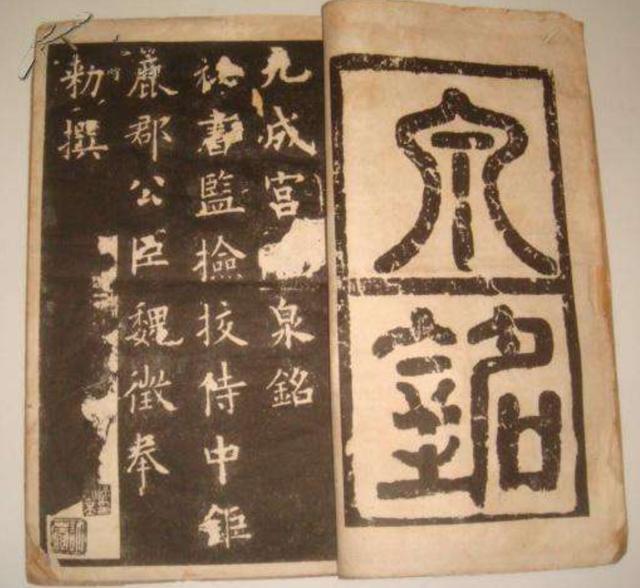 泉
銘
九成宮泉銘
祕書監撿挍侍中鉅
鹿郡公臣魏徵奉
勑撰